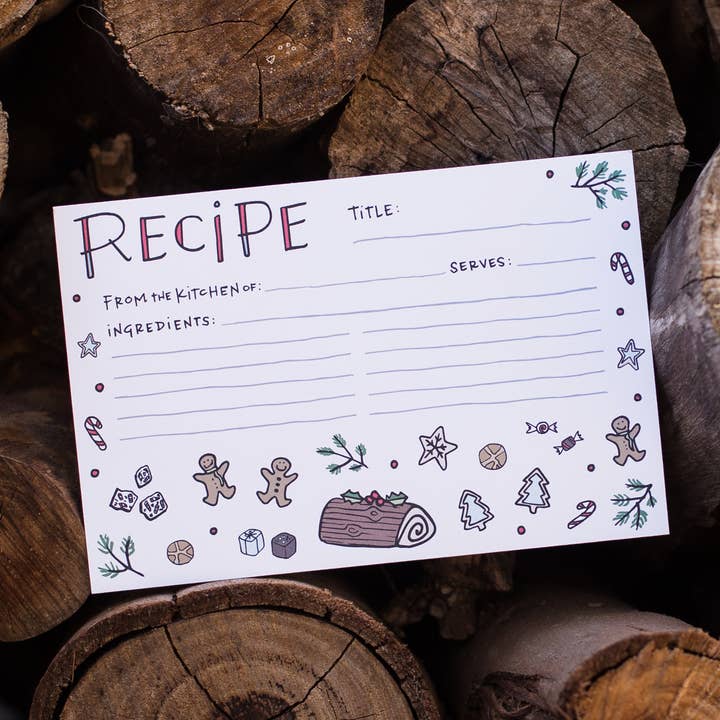 RECiPE
TiTLE:
FROM THE KiTCHEN OF:
SERVES:
iNGREDiENTS: